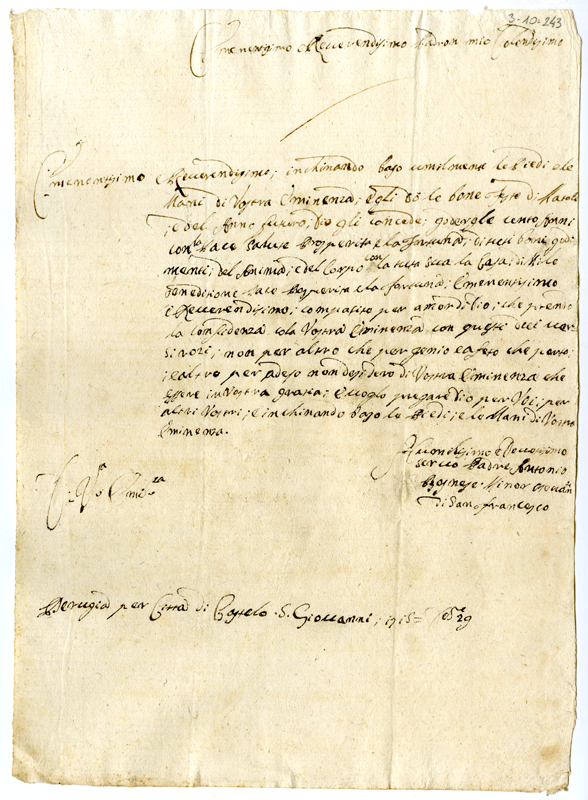 3-10-243
Eminentissimo Reverendissimo Padron mio Colendissimo
Eminentissimo Reverendissimo; inchinando bajo umilmente le Piedi e le
Mani di Vostra Eminenza; e gli dò le bone feste di Natale
; e del Anno futuro; Dio gli concede; godergle cento Anni
con Pace Salute Prosperita e la fortuna; di tuti bone godi
menti; del Anima; e del Corpo con la tuta Sua la Casa; di Mile
beneditione Pace Prosperita e la fortuna; Eminentissimo
e Reverendissimo; compatito per amor di Dio; che prendo
la confidenza cola Vostra Eminenza con queste dieci ver
si rozi; non per altro che per genio e afeto che porto
; e altro per adeso non desidero di Vostra Eminenza che
essere in Vostra gratia; e voglio pregare Dio per Voi; per
altri Vostri; e inchinando bajo le Piedi; e le Mani di Vostra
Eminenza.
Humilissimo e Devotissimo
servo Padre Antonio
Bosnese Minor
di San Francesco
Di Va Emiza
Perugia per Citta di Castelo S. Giovanni; 29